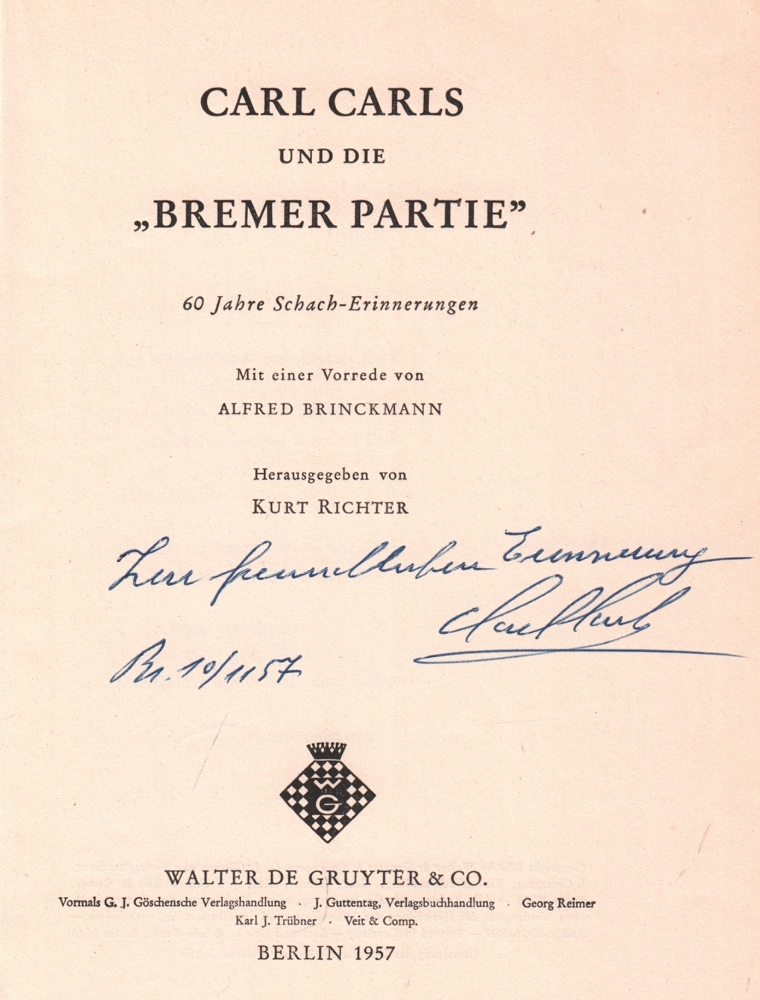 CARL CARLS
UND DIE
„BREMER PARTIE”
60 Jahre Schach-Erinnerungen
Mit einer Vorrede von
ALFRED BRINCKMANN
Herausgegeben von
KURT RICHTER
freundlichen Erinnerung
Carl Carls
Br. 10/11 57
W
G
WALTER DE GRUYTER & CO.
Vormals G. J. Göschensche Verlagshandlung · J. Guttentag, Verlagsbuchhandlung · Georg Reimer
Karl J. Trübner · Veit & Comp.
BERLIN 1957